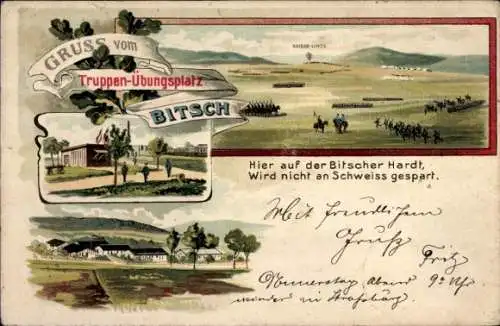 GRUSS vom
Truppen-Übungsplatz
BITSCH
KAISER-LINDE
Hier auf der Bitscher Hardt,
Wird nicht an Schweiss gespart.
Mit freundlichem
Gruß
Fritz
Donnerstag Abend 9 Uhr
wieder in Straßburg